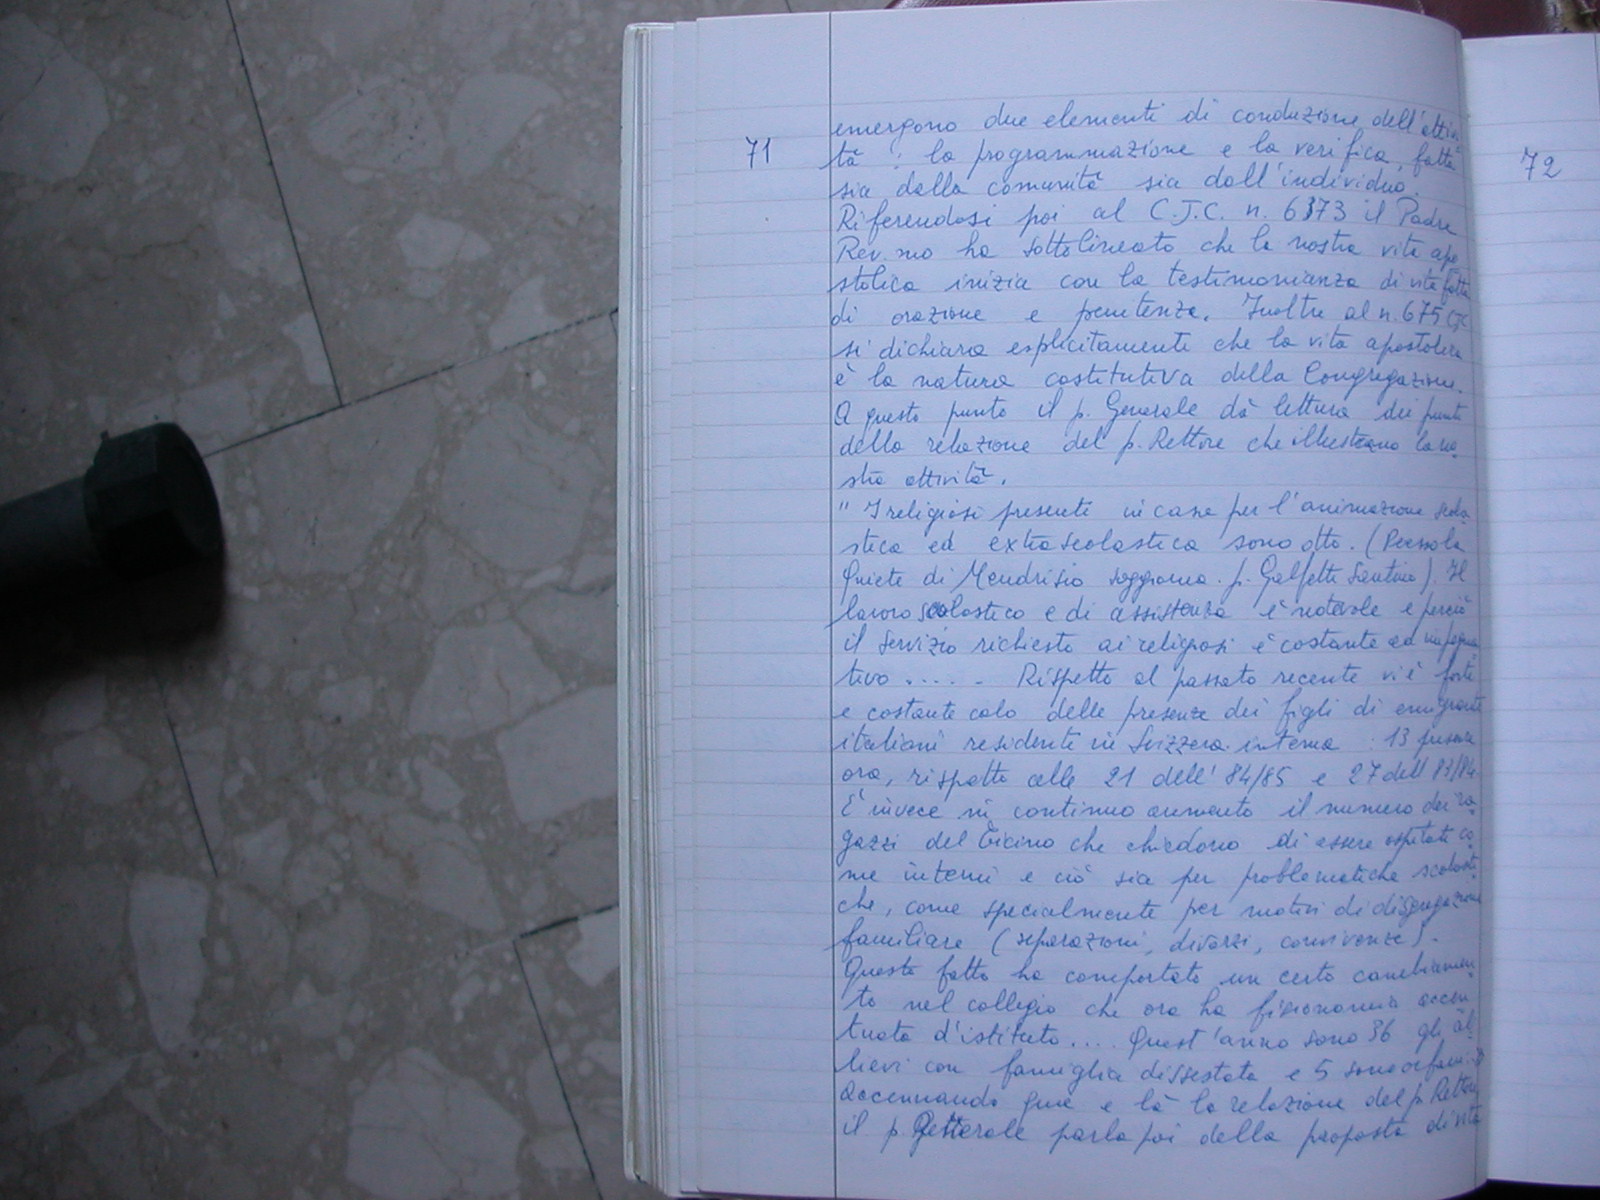 71
emergono due elementi di conduzione dell'attivi
tà : la programmazione e la verifica, fatta
sia dalla comunità sia dall'individuo.
Riferendosi poi al C.J.C. n. 6373 il Padre
Rev.mo ha sottolineato che la nostra vita apo
stolica inizia con la testimonianza di vita fatta
di orazione e penitenza. Inoltre al n. 675 CJC
si dichiara esplicitamente che la vita apostolica
è la natura costitutiva della Congregazione.
A questo punto il p. Generale dà lettura dei punti
della relazione del p. Rettore che illustrano la no
stra attività.
" I religiosi presenti in casa per l'animazione scola
stica ed extrascolastica sono otto. (Presso la
Quiete di Mendrisio soggiorna p. Galfetti Santino). Il
lavoro scolastico e di assistenza è notevole e perciò
il servizio richiesto ai religiosi è costante ed impegna
tivo ..... Rispetto al passato recente vi è forte
e costante calo delle presenze dei figli di emigranti
italiani residenti in Svizzera interna : 13 presenze
ora, rispetto alle 21 dell' 84/85 e 27 dell' 83/84.
È invece in continuo aumento il numero dei ra
gazzi del Ticino che chiedono di essere ospitati co
me interni e ciò sia per problematiche scolasti
che, come specialmente per motivi di disgregazione
familiare (separazioni, divorzi, convivenze).
Questo fatto ha comportato un certo cambiamen
to nel collegio che ora ha fisionomia accen
tuata d'istituto.... Quest'anno sono 36 gli al
lievi con famiglia dissestata e 5 sono orfani.»
Accennando qua e là la relazione del p. Rettore
il p. Generale parla poi della proposta di vita
72